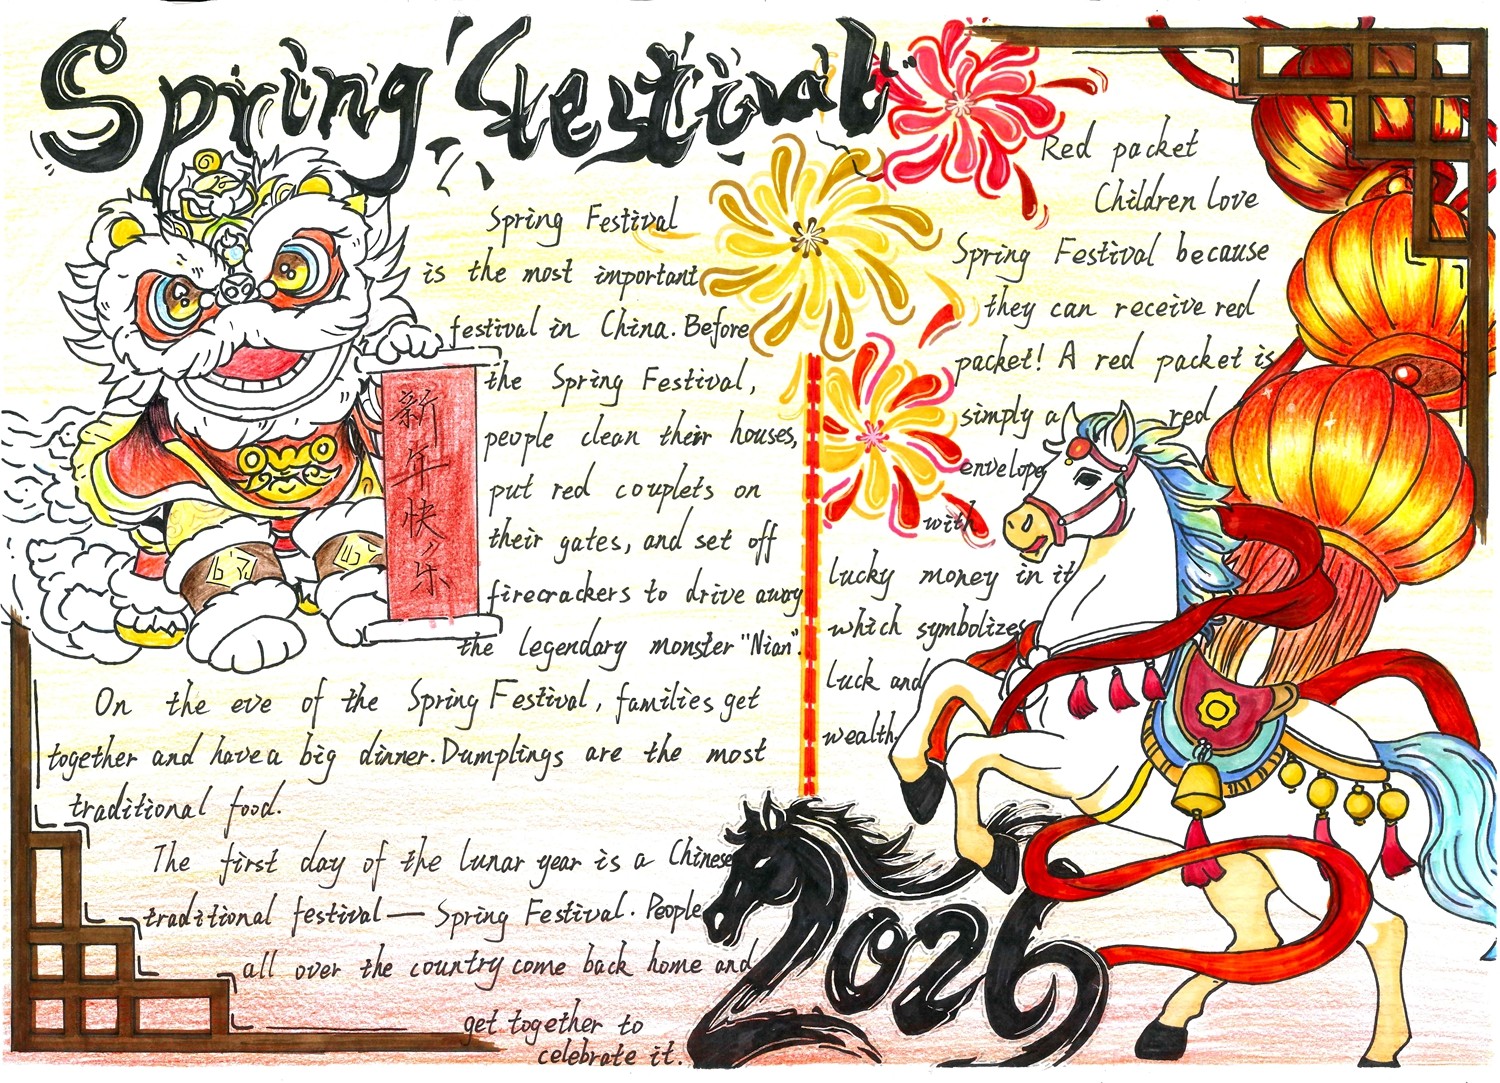 Spring Festival
Spring Festival
is the most important
festival in China. Before
the Spring Festival,
people clean their houses,
put red couplets on
their gates, and set off
firecrackers to drive away
the legendary monster "Nian".
On the eve of the Spring Festival, families get
together and have a big dinner. Dumplings are the most
traditional food.
The first day of the lunar year is a Chinese
traditional festival — Spring Festival. People
all over the country come back home and
get together to
celebrate it.
新年快乐
Red packet
Children love
Spring Festival because
they can receive red
packet! A red packet is
simply a red
envelope
with
lucky money in it
which symbolizes
luck and
wealth.
2026